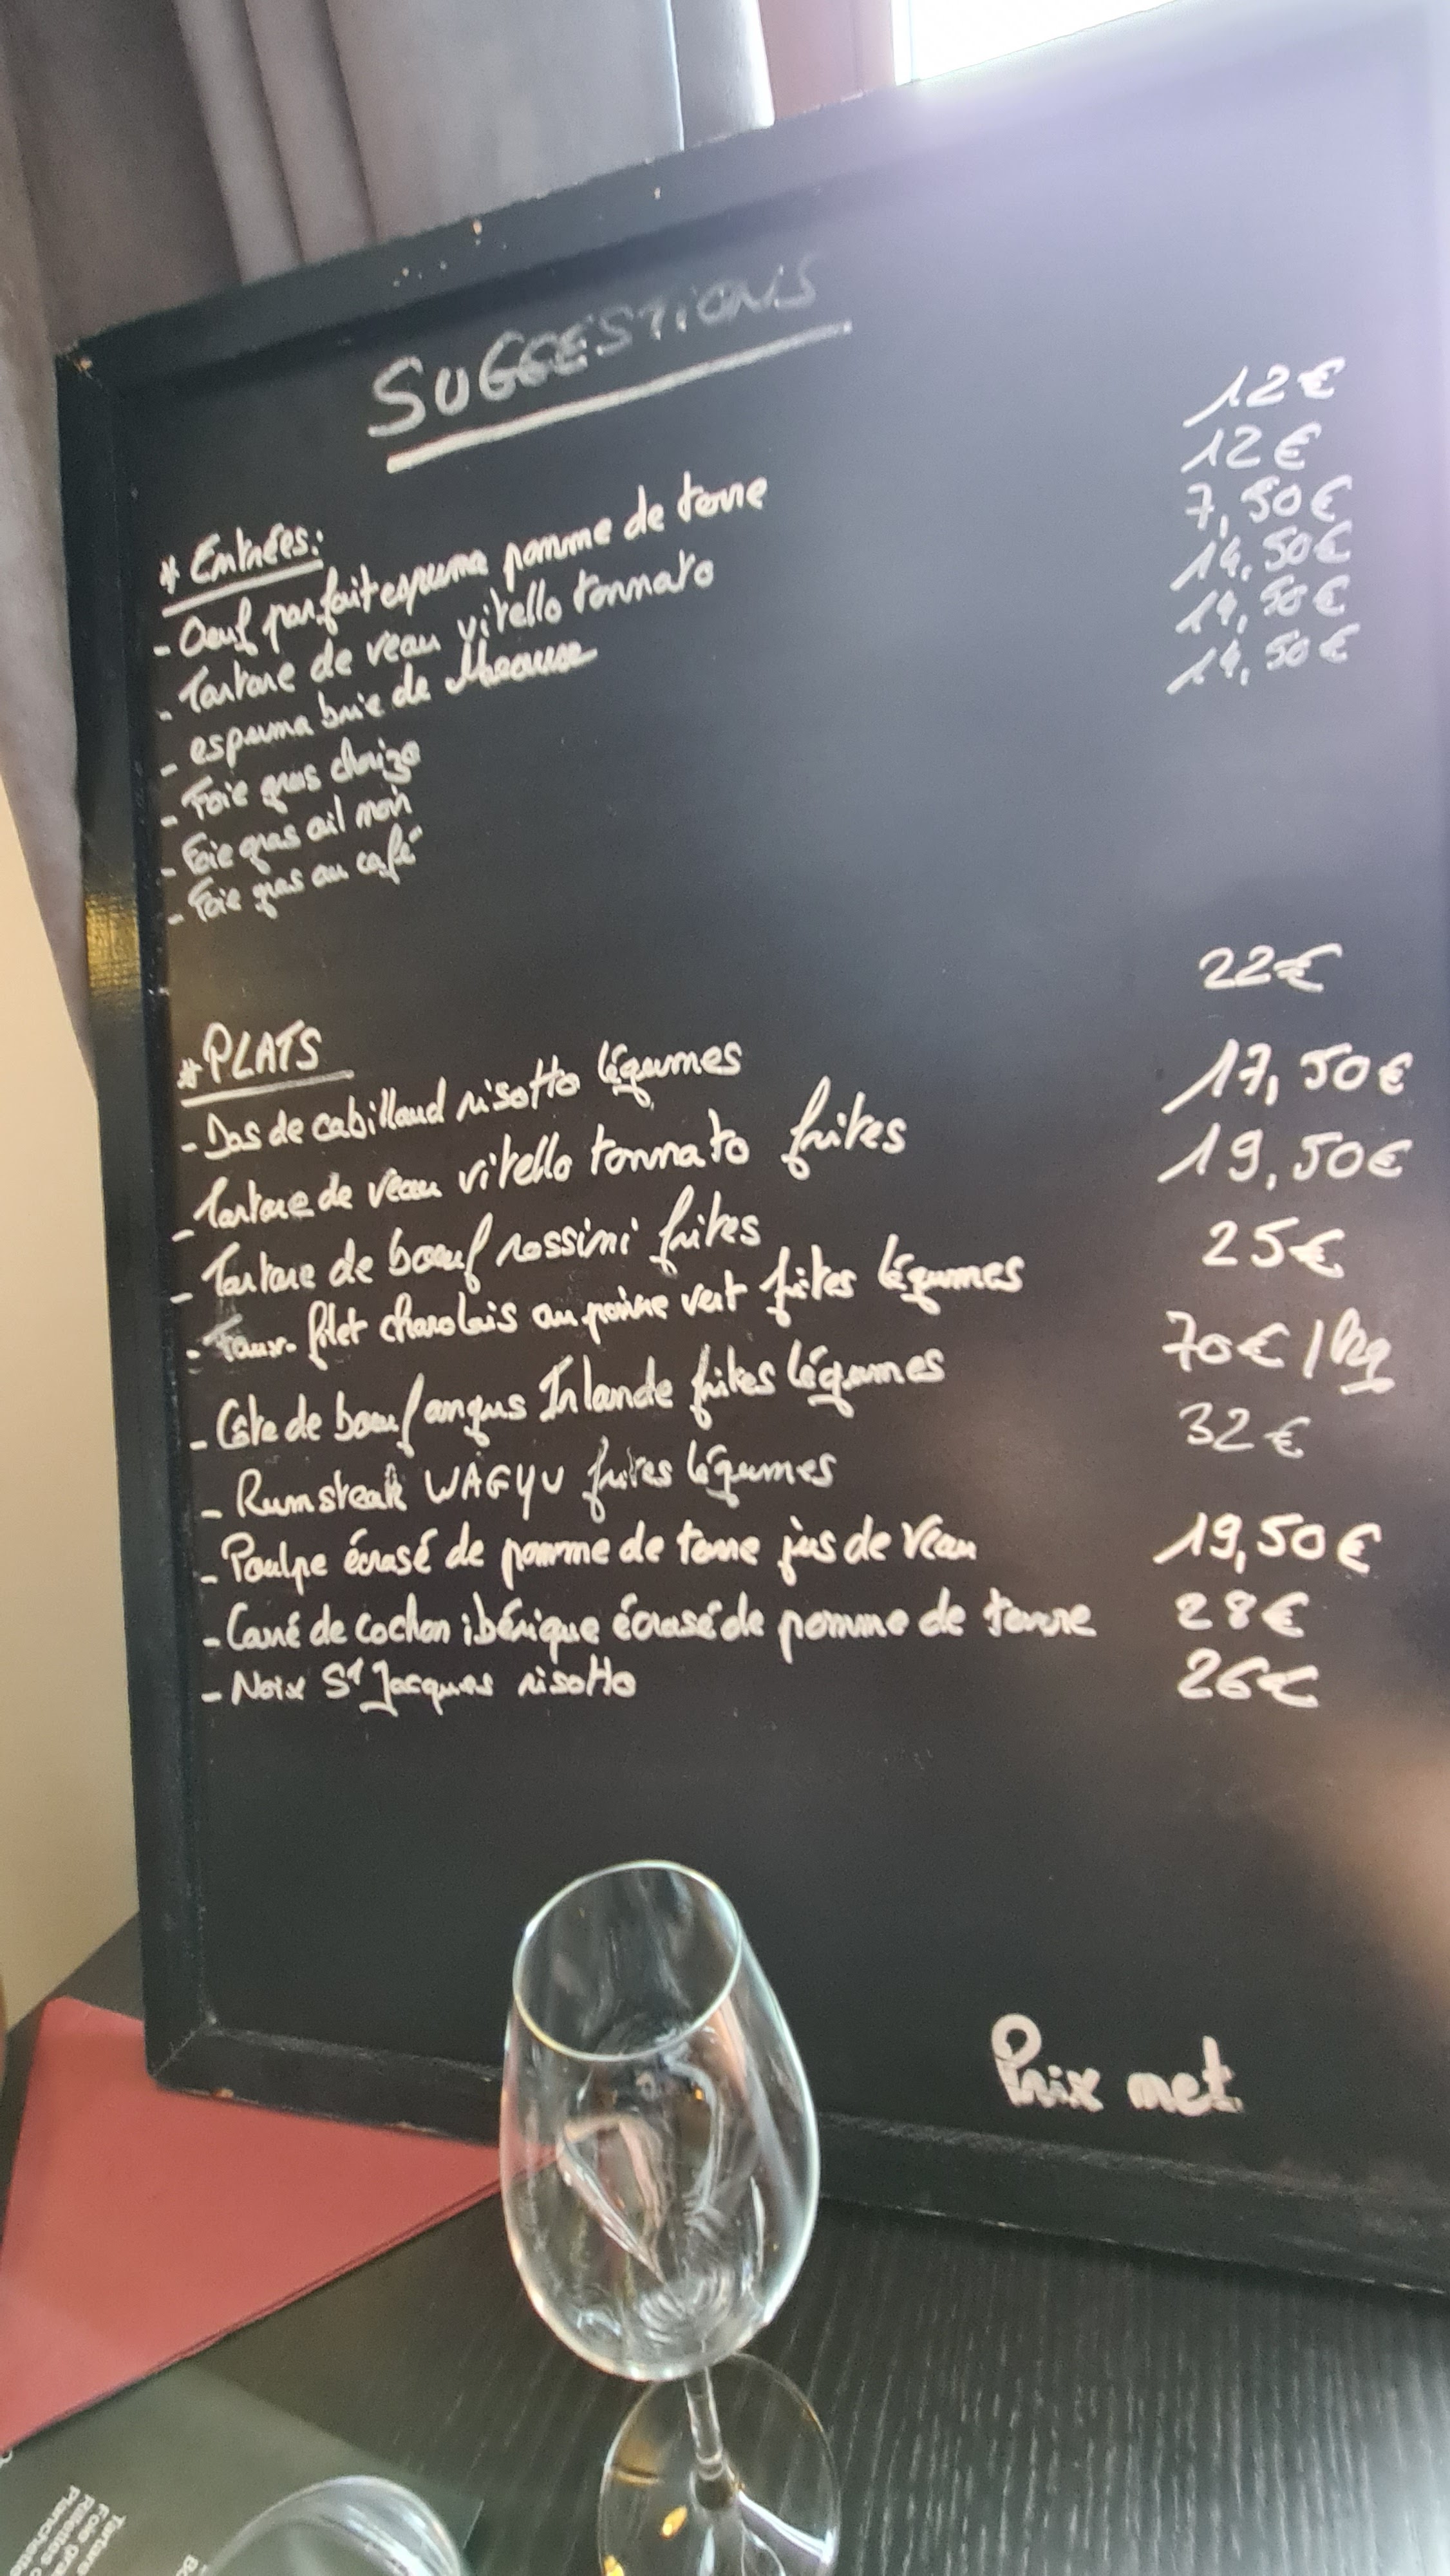 SUGGESTIONS
* Entrées:
- Oeuf parfait espuma pomme de terre 12€
- Tartare de veau vitello tonnato 12€
- espuma brie de Meaux 7,50€
- Foie gras chorizo 14,50€
- Foie gras ail noir 14,50€
- Foie gras au café 14,50€
* PLATS
- Dos de cabillaud risotto légumes 22€
- Tartare de veau vitello tonnato frites 17,50€
- Tartare de boeuf rossini frites 19,50€
- Faux-filet charolais au poivre vert frites légumes 25€
- Côte de boeuf angus Irlande frites légumes 70€/kg
- Rumsteak WAGYU frites légumes 32€
- Poulpe écrasé de pomme de terre jus de veau 19,50€
- Carré de cochon ibérique écrasé de pomme de terre 28€
- Noix St Jacques risotto 26€
Prix net
Tartare
Foie gra
Rillettes
Planchette